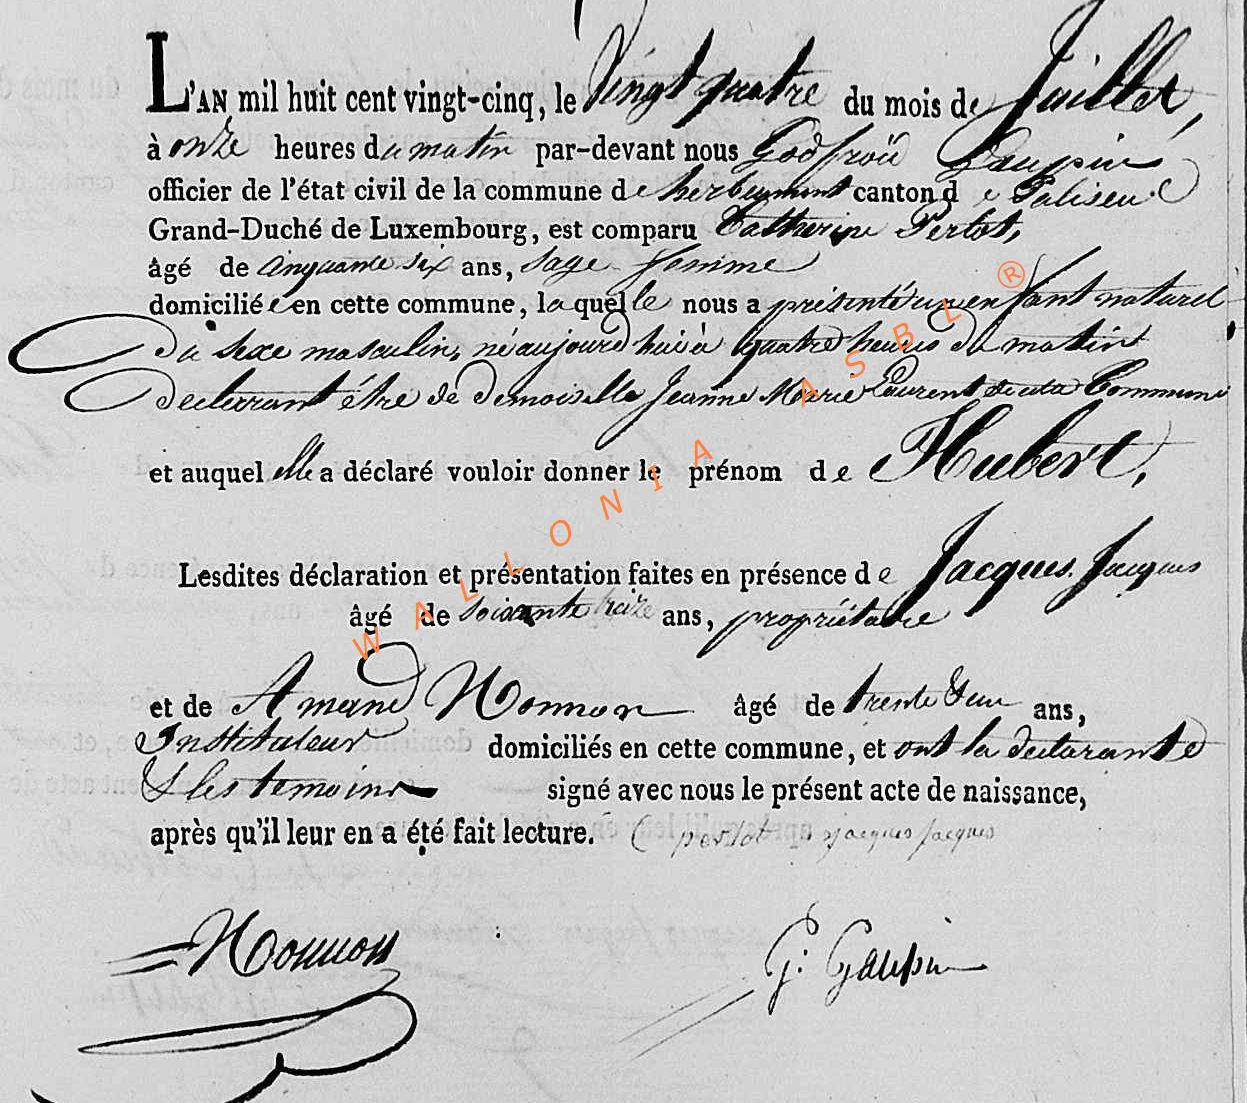 L'AN mil huit cent vingt-cinq, le Vingt quatre du mois de Juillet,
à onze heures du matin par-devant nous Godfroid Gaupin
officier de l'état civil de la commune de herbeumont canton de Paliseul
Grand-Duché de Luxembourg, est comparu Catherine Perlot,
âgé de Cinquante six ans, Sage femme
domiciliée en cette commune, laquelle nous a présenté un enfant naturel
du Sexe masculin, né aujourd'huie à quatre heures du matin
declarrant être de demoiselle Jeanne Marie Laurent de cette Commune
et auquel elle a déclaré vouloir donner le prénom de Hubert,
Lesdites déclaration et présentation faites en présence de Jacques Jacques
âgé de soixante treize ans, propriétaire
et de Amand Nonnon âgé de trente & un ans,
Instituteur domiciliés en cette commune, et ont la declarante
& les temoins signé avec nous le présent acte de naissance,
après qu'il leur en a été fait lecture. C perlot jacques jacques
Nonnon G. Gaupin
WALLONIA ASBL ®